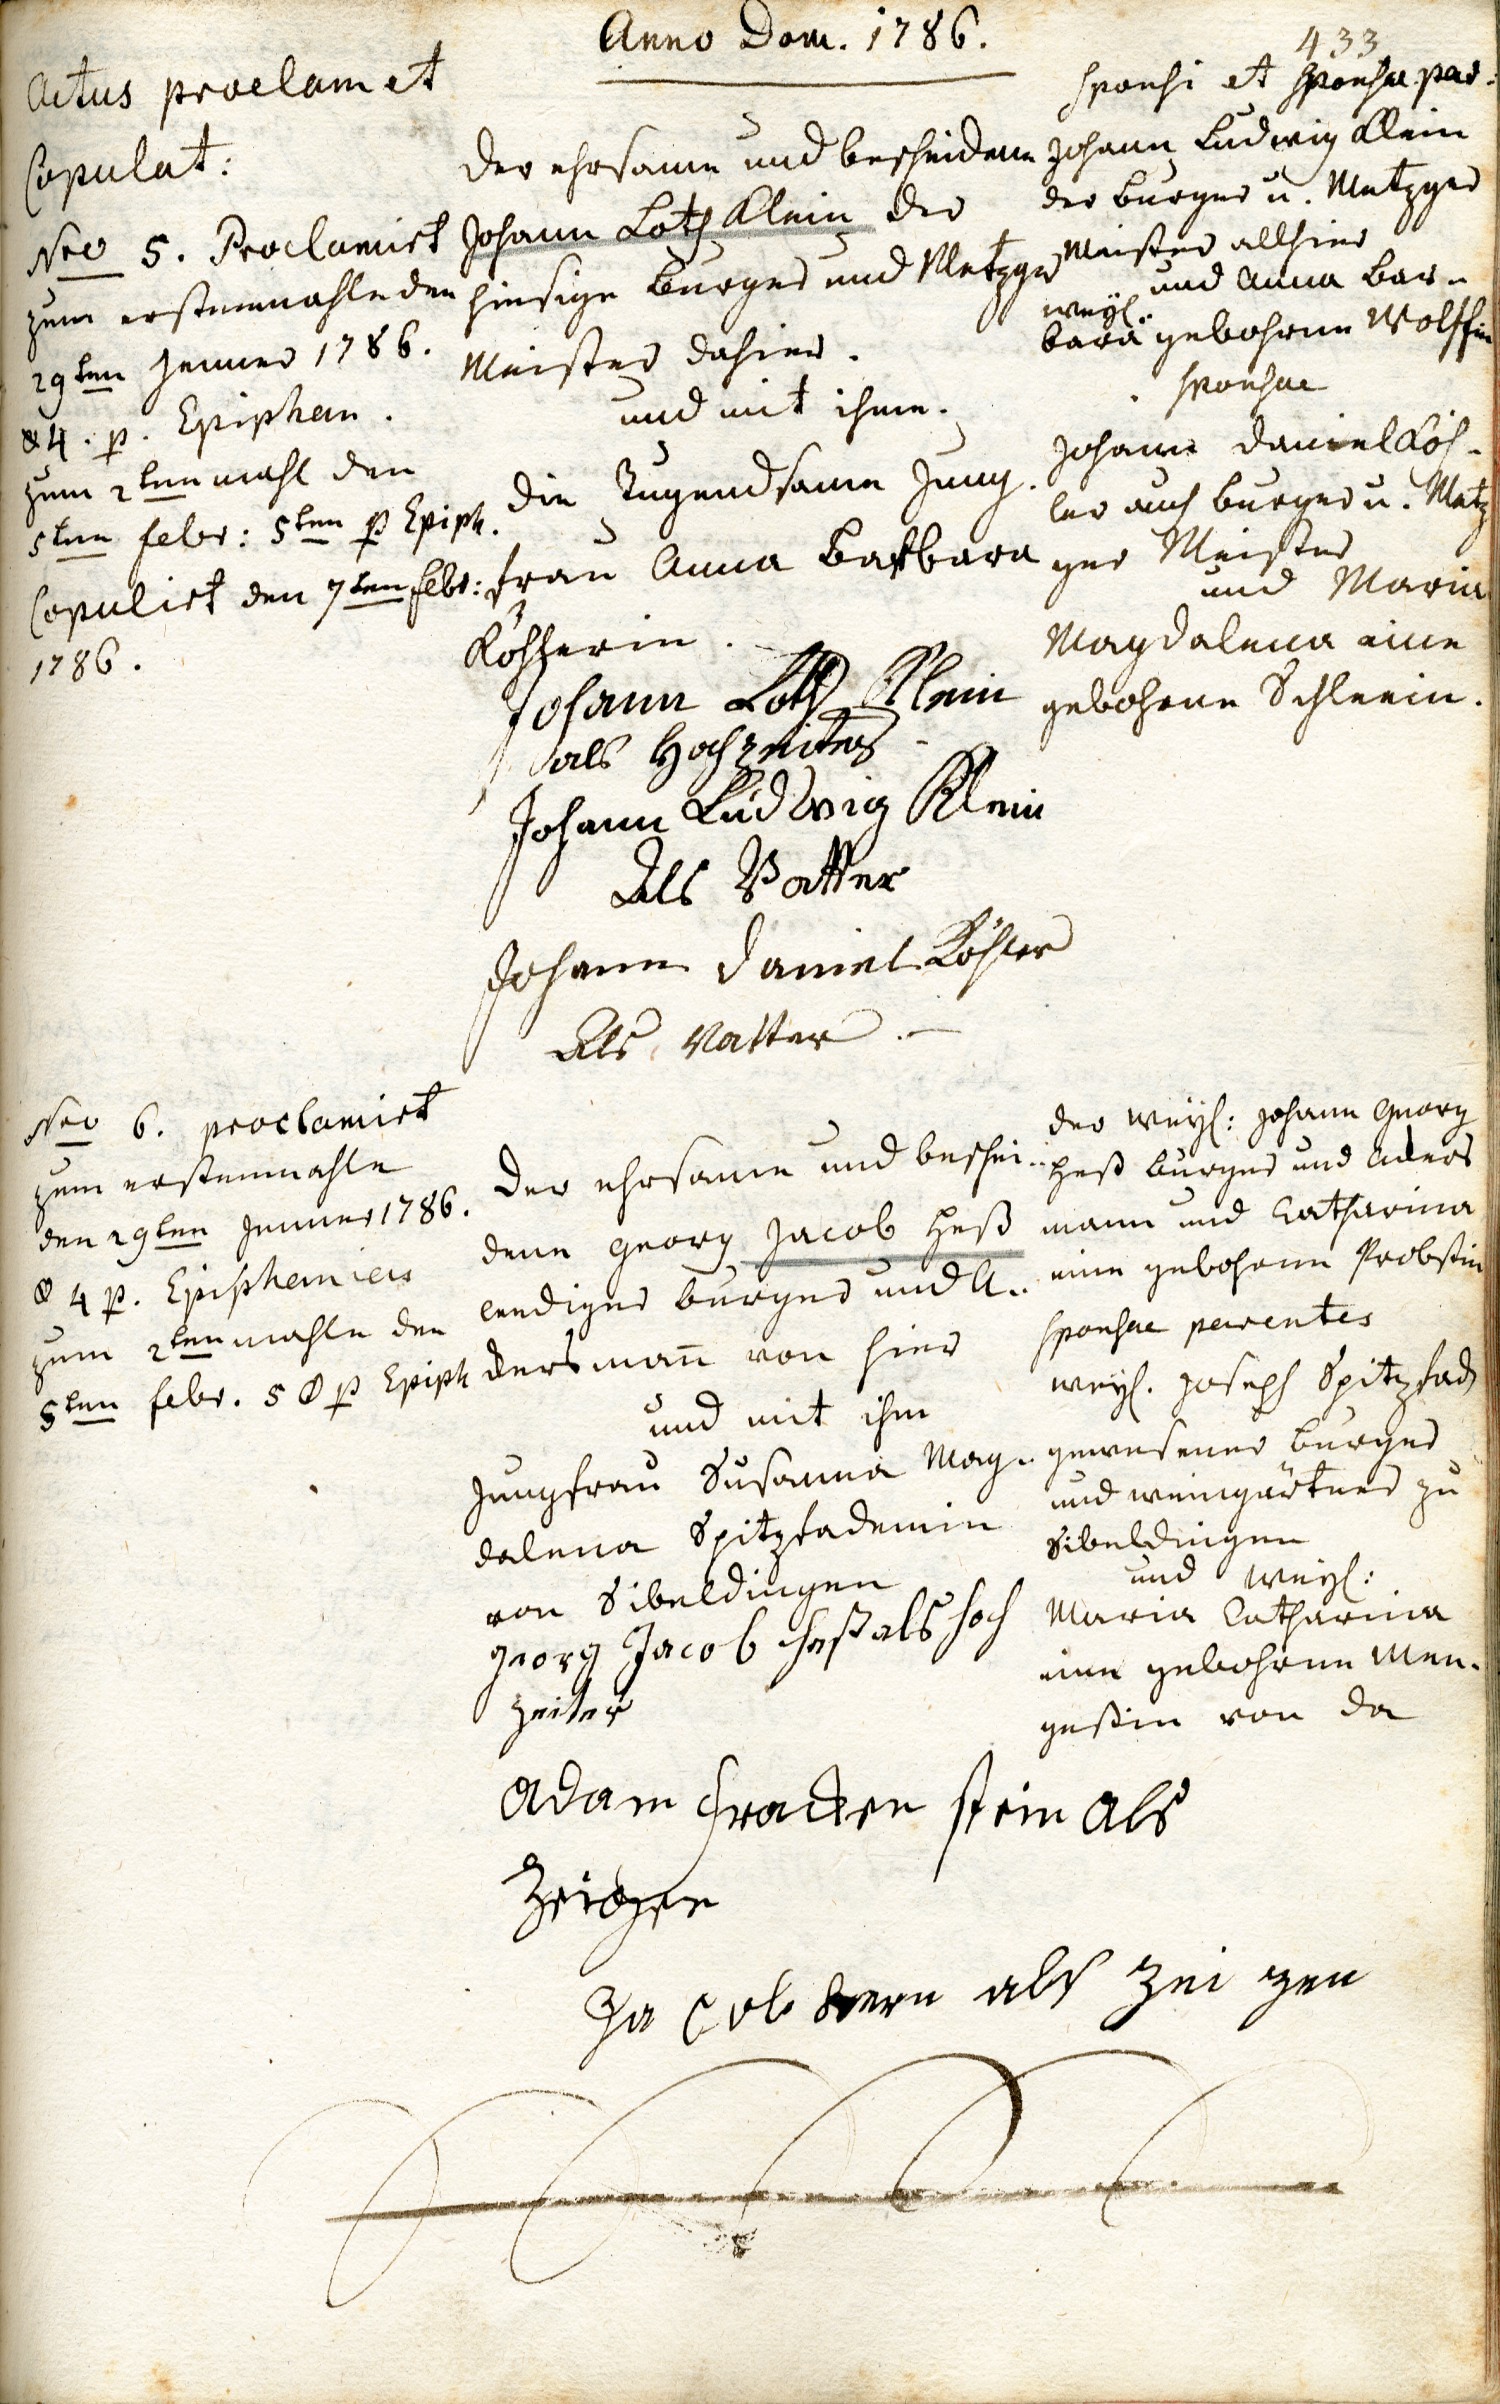 Anno Dom. 1786.
433
Actus proclam et
Copulat:
Nro 5. Proclamirt
zum erstenmahle den
29ten Jenner 1786.
4. p. Epiphan.
zum 2ten mahl den
5ten Febr: 5ten p Epiph.
Copulirt den 7ten Febr:
1786.
Der ehrsame und bescheidene
Johann Loth Klein der
hiesige Burger und Metzger
Meister dahier.
und mit ihme.
die Tugendsame Jung.
frau Anna Barbara
Köhlerin.
Johann Loth Klein
als Hochzeiter
Johann Ludwig Klein
Als Vatter
Johann Daniel Köhler
Als Vatter
Sponsi et Sponsae par:
Johann Ludwig Klein
der Burger u. Metzger
Meister allhier
und Anna Bar-
weyl.
bara gebohrne Wolffin
Sponsae
Johann Daniel Köh-
ler auch Burger u. Metz
ger Meister
und Maria
Magdalena eine
gebohrne Schleein.
Nro 6. proclamirt
zum erstenmahle
den 29ten Jenner 1786.
4 p. Epiphanias
zum 2ten mahle den
5ten Febr. 5 p Epiph
Der ehrsame und beschei-
dene Georg Jacob Heß
leediger Burger und A-
ckersmann von hier
und mit ihm
Jungfrau Susanna Mag-
dalena Spitzfademin
von Sibeldingen
Georg Jacob heß als hoch
zeiter
Adam Fracken stein als
Zeigen
Ja cob Kern als Zei gen
der weyl: Johann Georg
Heß Burger und Ackers
mann und Catharina
eine gebohrne Probstin
Sponsae parentes
weyl. Joseph Spitzfad
gewesener Burger
und Weingärtner zu
Sibeldingen
und weyl:
Maria Catharina
eine gebohrne Men-
geßin von da